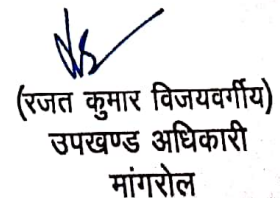 (रजत कुमार विजयवर्गीय)
उपखण्ड अधिकारी
मांगरोल